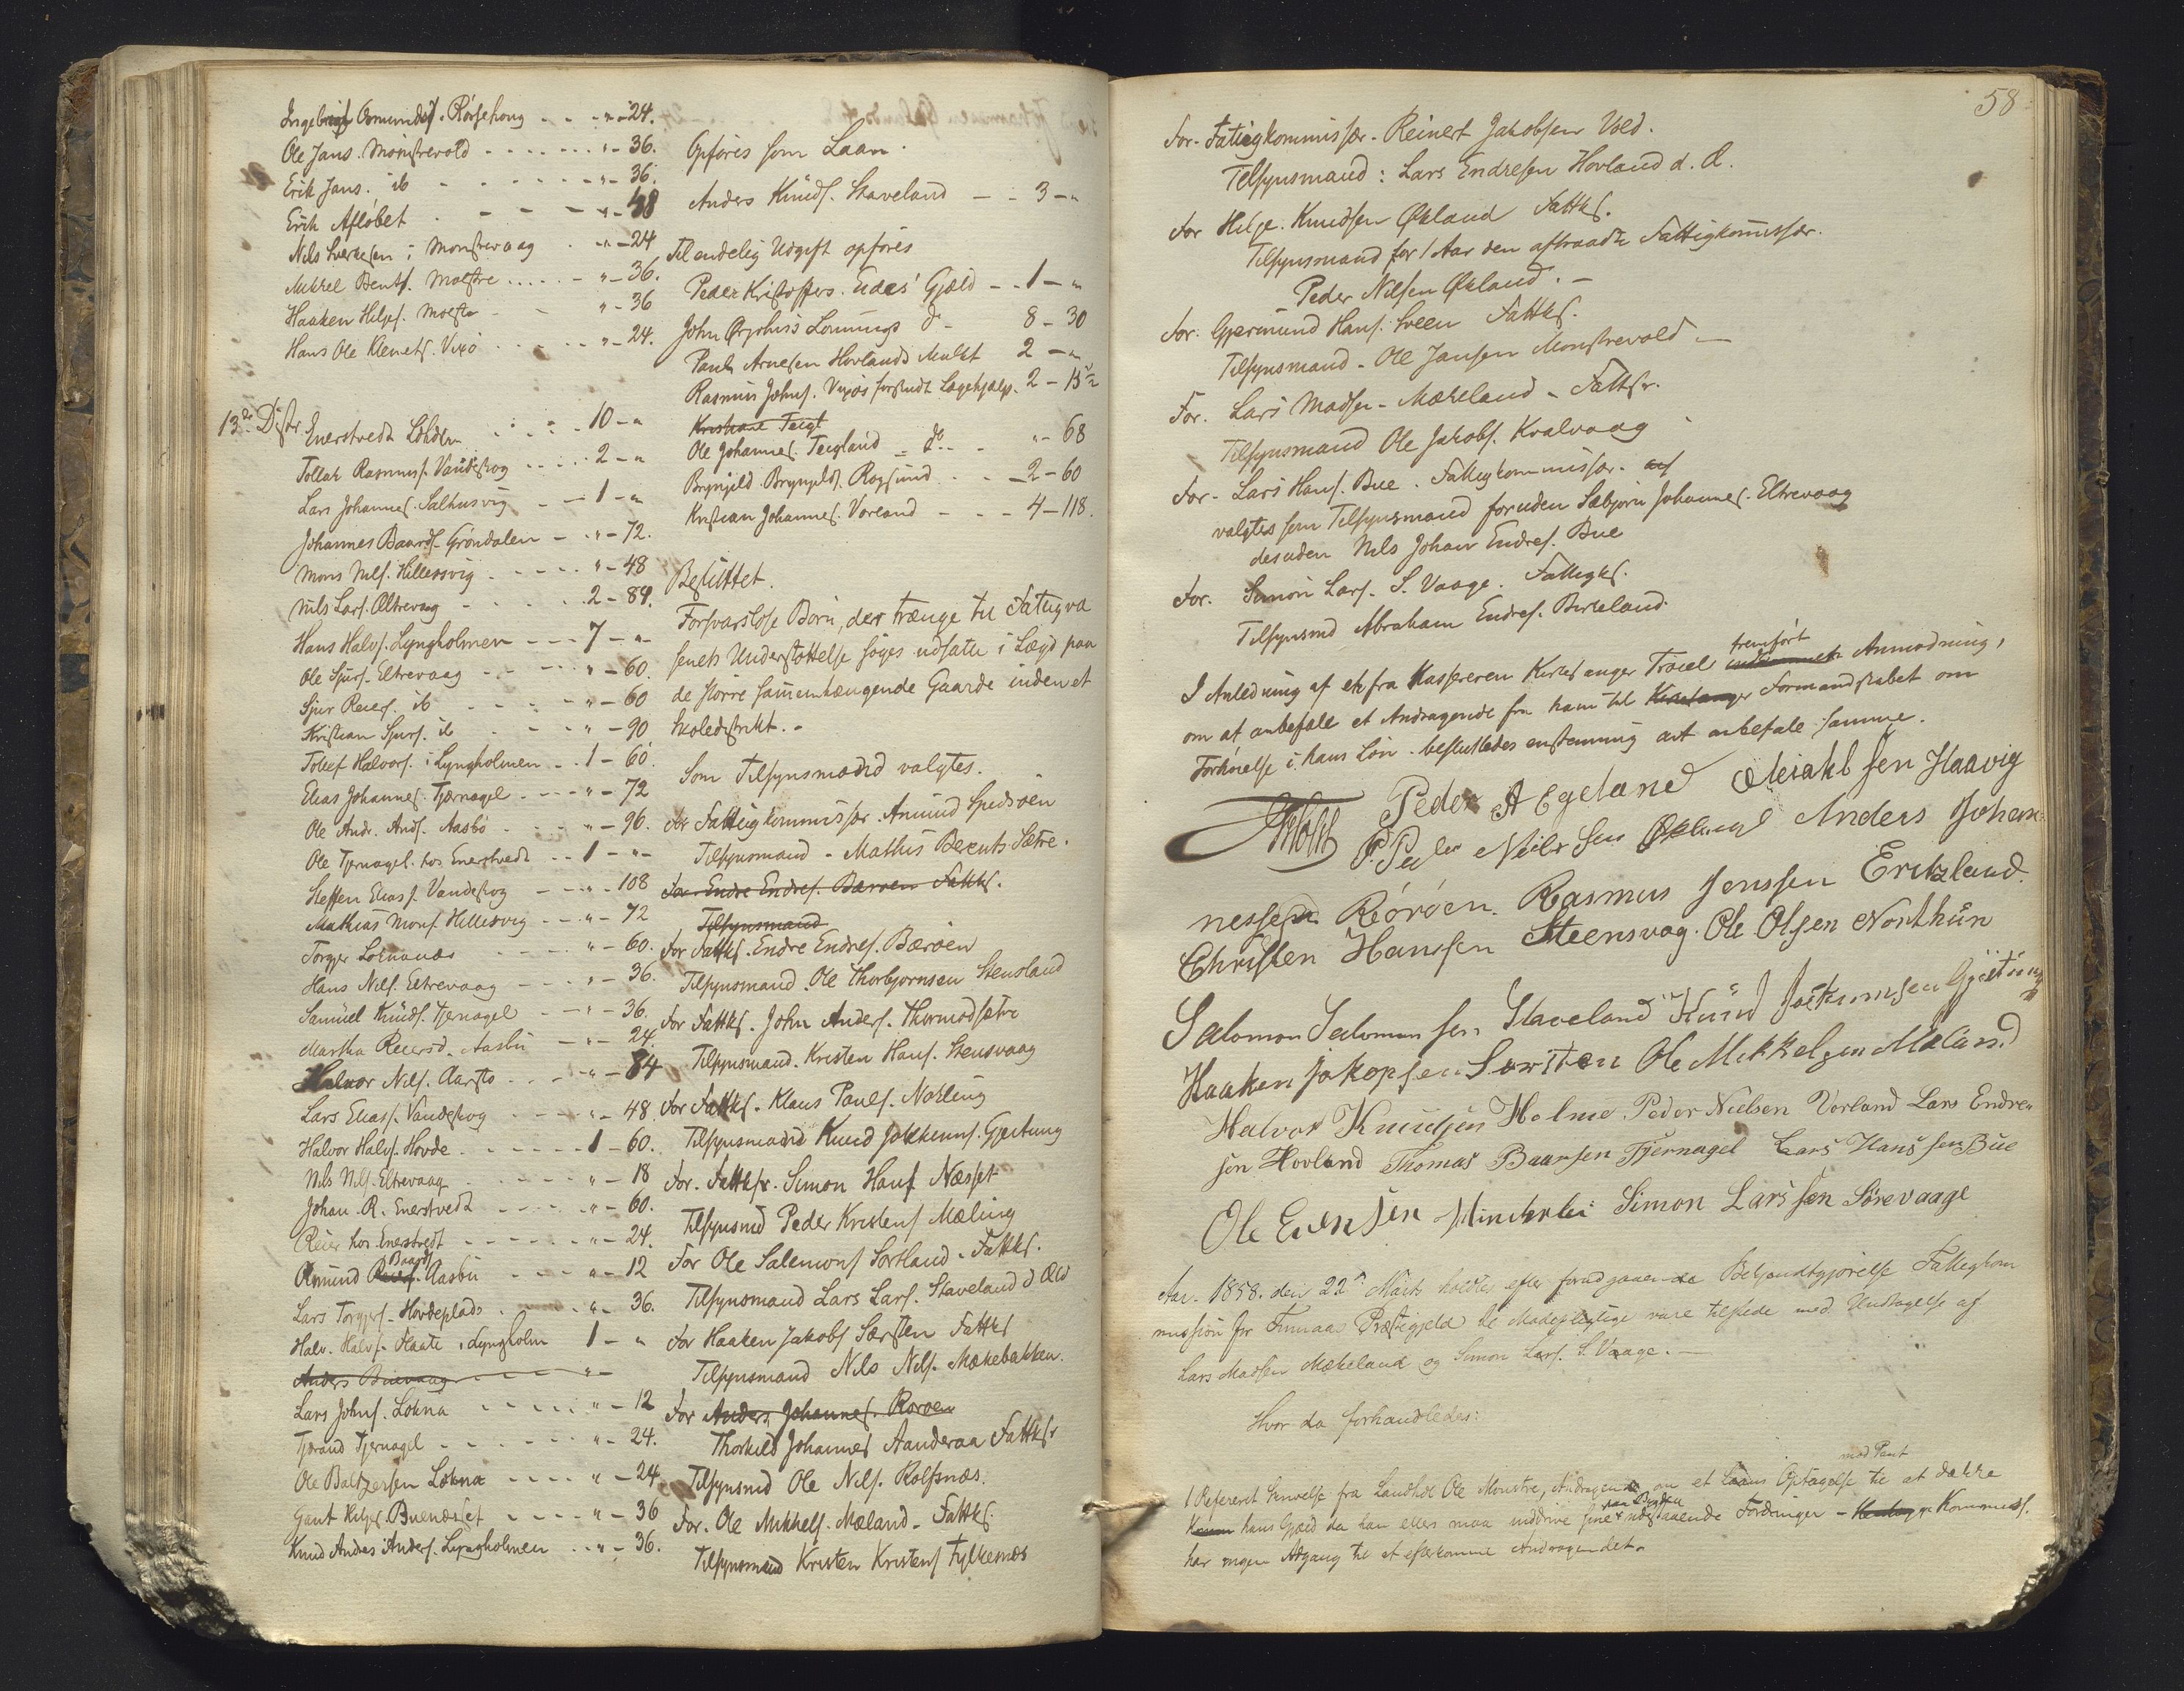 Ingebrigt Omunds. Rørsehoug - - - " - 24.
Ole Jans. Monstrevold - - - - - - " - 36.
Erik Jans. ib - - - - - - " - 36.
Erik Afløbet - - - - " - 48
Nils Sverkesen i Monstrevaag - - " - 24
Mikkel Bents. Moestre - - - - - " - 36.
Haaken Helges. Moester - - " - 36
Hans Ole Klemets. Vixø - - - - - " - 24.
13de Distr Enerstvedt Lökder - - - - 10 - "
Tollak Rasmus. Vandskog - - - - 2 - "
Lars Johannes. Salhusvig - - 1 - "
Johannes Baards. Grøndalen - - " - 72.
Mons Nils. Hillesvig - - - - - " - 48
Nils Lars. Eltrevaag - - - - 2 - 84.
Hans Halvs. Lyngholmen - - - 7 - "
Ole Sjurs. Eltrevaag - - - - " - 60.
Sjur Reiers. ib - - - - " - 60
Kristian Sjurs. ib - - - " - 90
Tollef Halvors. i Lyngholmen - - 1 - 60.
Elias Johannes. Tjernagel - - - - " - 72
Ole Andr. Ands. Aasbø - - - - " - 96.
Ole Tjernagel. hos Enerstvedt - - 1 - " -
Steffen Elias s. Vandeskog - - - " - 108
Mathias Mons. Hillesvig - - - " - 72
Torger Loknanæs - - - - " - 60.
Hans Nils. Eltrevaag - - - - " - 36.
Samuel Knuds. Tjernagel - - - " - 36.
Martha Reiersd. Aasbu - - " - 24.
Halvor Nils. Aarsto - - - " - 84
Lars Elias s. Vandeskog - - - - " - 48.
Halvor Halvs. Hovde - - - - - - 1 - 60.
Nils Nils. Eltrevaag - - - - " - 18
Johan. R. Enerstvedt - - - - " - 60.
Reier hos Enerstvedt - - - - - " - 24.
Baards
Omund Aasbu - - - " - 12
Lars Torgers. Hovdeplads - - - - " - 36.
Halv. Halvs. Flaate i Lyngholm 1 - "
Anders Buevaag - - - - " -
Lars Johns. Lokna - - - - - " - 12
Tjerand Tjernagel - - - - - - " - 24.
Ole Baltzersen Lokna - - - - " - 24
Gaut Helges. Buenæsset - - - - " - 36
Knud Andreas Anders. Lyngholmen - - " - 36.
Opføres som Laan.
Anders Knuds. Staveland - - 3 - "
Til endelig Udgift opføres
Peder Kristoffers. Eides Gjæld - - 1 - "
John Lonnings do - 8 - 30
Paul Arnesen Hovlands Mulkt 2 - "
Rasmus Johns. Vixøs forskudt Lægehjælp. 2 - 15 1/2
Kristiane Teigl
Ole Johannes. Teigland - do - - " - 68
Brynjeld Brynjelds. Rogsund - - 2 - 60
Kristian Johannes. Vorland - - - 4 - 118.
Besluttet.
Forsvarsløse Børn, der trænge til Fatigvæ
senets Understøttelse søges udsatte i Lægd paa
de større sammenhængende Gaarde inden et
Skoledistrikt. -
Som Tilsynsmænd valgtes.
For Fattigkommissær Amund Spidsøen
Tilsynsmand - Mathis Berents. Sætre.
For Endre Endres. Bærøen Fattks.
Tilsynsmand
For Fattks. Endre Endres. Bærøen
Tilsynsmand. Ole Thorbjørnsen Stensland
For Fattks. John Anders. Thormodsætre
Tilsynsmand. Kristen Hans. Stensvaag
For Fattks. Klaus Pauls. Nokling
Tilsynsmand Knud Jokkums. Gjeitung
For. Fattksr. Simon Hans Næsset
Tilsynsmd Peder Kristens Mæling
For Ole Salemons Sortland. Fattks.
Tilsynsmand Lars Lars. Staveland d Æld
For Haaken Jakobs Særsten Fattks
Tilsynsmand Nils Nils. Mækebakken.
For Anders Johannes. Rorøen
Thorkild Johannes Aanderaa Fattksr
Tilsynsmd Ole Nils. Rolfsnæs.
For. Ole Mikkels. Mæland - Fattks.
Tilsynsmand Kristen Kristens Fylkesnæs
58
For. Fatigkommissær. Reinert Jakobsen Vold.
Tilsynsmand: Lars Endresen Hovland d. Æ.
For Helge. Knudsen Økland Fattks.
Tilsynsmand for 1 Aar den aftraadte Fattigkommissær.
Peder Nilsen Økland. -
For. Gjermund Hans. Sveen Fattks.
Tilsynsmand - Ole Jansen Monstrevold -
For. Lars Madsen - Mækeland - Fattksr.
Tilsynsmand Ole Jakobs. Kvalvaag
For - Lars Hans. Bue. Fattigkommissær.
valgtes som Tilsynsmand foruden Sæbjørn Johannes. Eltrevaag
desuden Nils Johan Endres. Bue
For. Simon Lars. S. Vaage. Fattigks.
Tilsynsmd Abraham Endres. Birkeland.
fremført
I Anledning af en fra Kassereren Kirkesanger Troiel Anmodning,
om at anbefale et Andragende fra ham til Formandskabet om
Forhøielse i hans Løn - besluttedes enstemmig at anbefale samme.
Peder A Egeland Meiakel sen Haavig
P. Peder Neilssen Økland Anders Johan
nessen Rörøen. Rasmus Jenssen Eritzland.
Christen Hanssen Steensvag. Ole Olsen Northun
Salomon Salomonsen Staveland Knud Jockumsen Gjeitung
Haaken Jakopsen Særsten Ole Mikkelsen Mæland
Halvor Knudsen Holme Peder Nielsen Vorland Lars Endre-
sen Hovland Thomas Baarsen Tjernagel Lars Hanssen Bue
Ole Evensen Simon Larssen Sörevaage
Aar. 1858. den 22de Marts holdtes efter forudgaaende Bekjendtgjørelse Fattigkom
mission for Finnaas Præstegjeld de Mødepligtige vare tilstede med Undtagelse af
Lars Madsen Mækeland og Simon Lars. S. Vaage. -
Hvor da forhandledes:
mod Pant
1 Refereret Skrivelse fra Landhdl Ole Monstre, Andragende om et Laans Optagelse til at dække
hans Gjæld da han ellers maa inddrive sine udestaaende Fordringer - Kommiss.
har ingen Adgang til at efterkomme Andragendet.